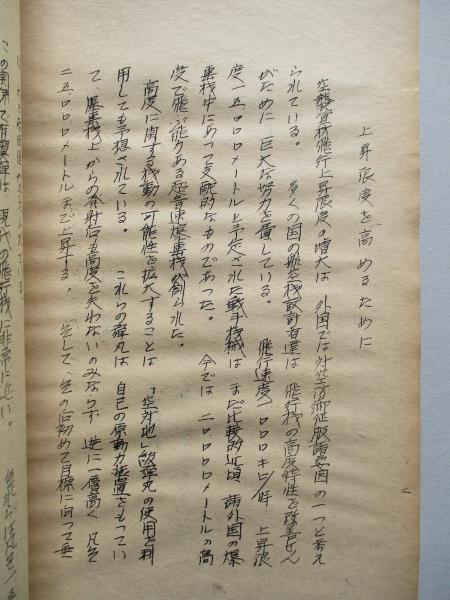 上昇限度を高めるために
空襲資材飛行上昇限度の増大は 外国では対空防御征服諸要因の一つと考え
られている。 多くの国の航空機設計者達は 飛行機の高度特性を改善せん
がために 巨大な努力を費している。 飛行速度一〇〇〇キロ/時 上昇限
度一五、〇〇〇メートルと予定された戦斗機械は まだ比較的近頃 諸外国の爆
撃機中にあって支配的なものであった。 今では 二〇〇〇〇メートルの高
度で飛ぶ能力ある超音速爆撃機が創られた。
高度に関する機動の可能性を拡大することは 「空対地」飛弾丸の使用を利
用しても予想されている。 これらの弾丸は 自己の原動力装置をもってい
て 爆撃機上からの発射后も高度を失わないのみならず 逆に一層高く 凡そ
二五、〇〇〇メートルまで上昇する。 そして、その后初めて目標に向って垂
この
現代の飛行機に非常に近い。